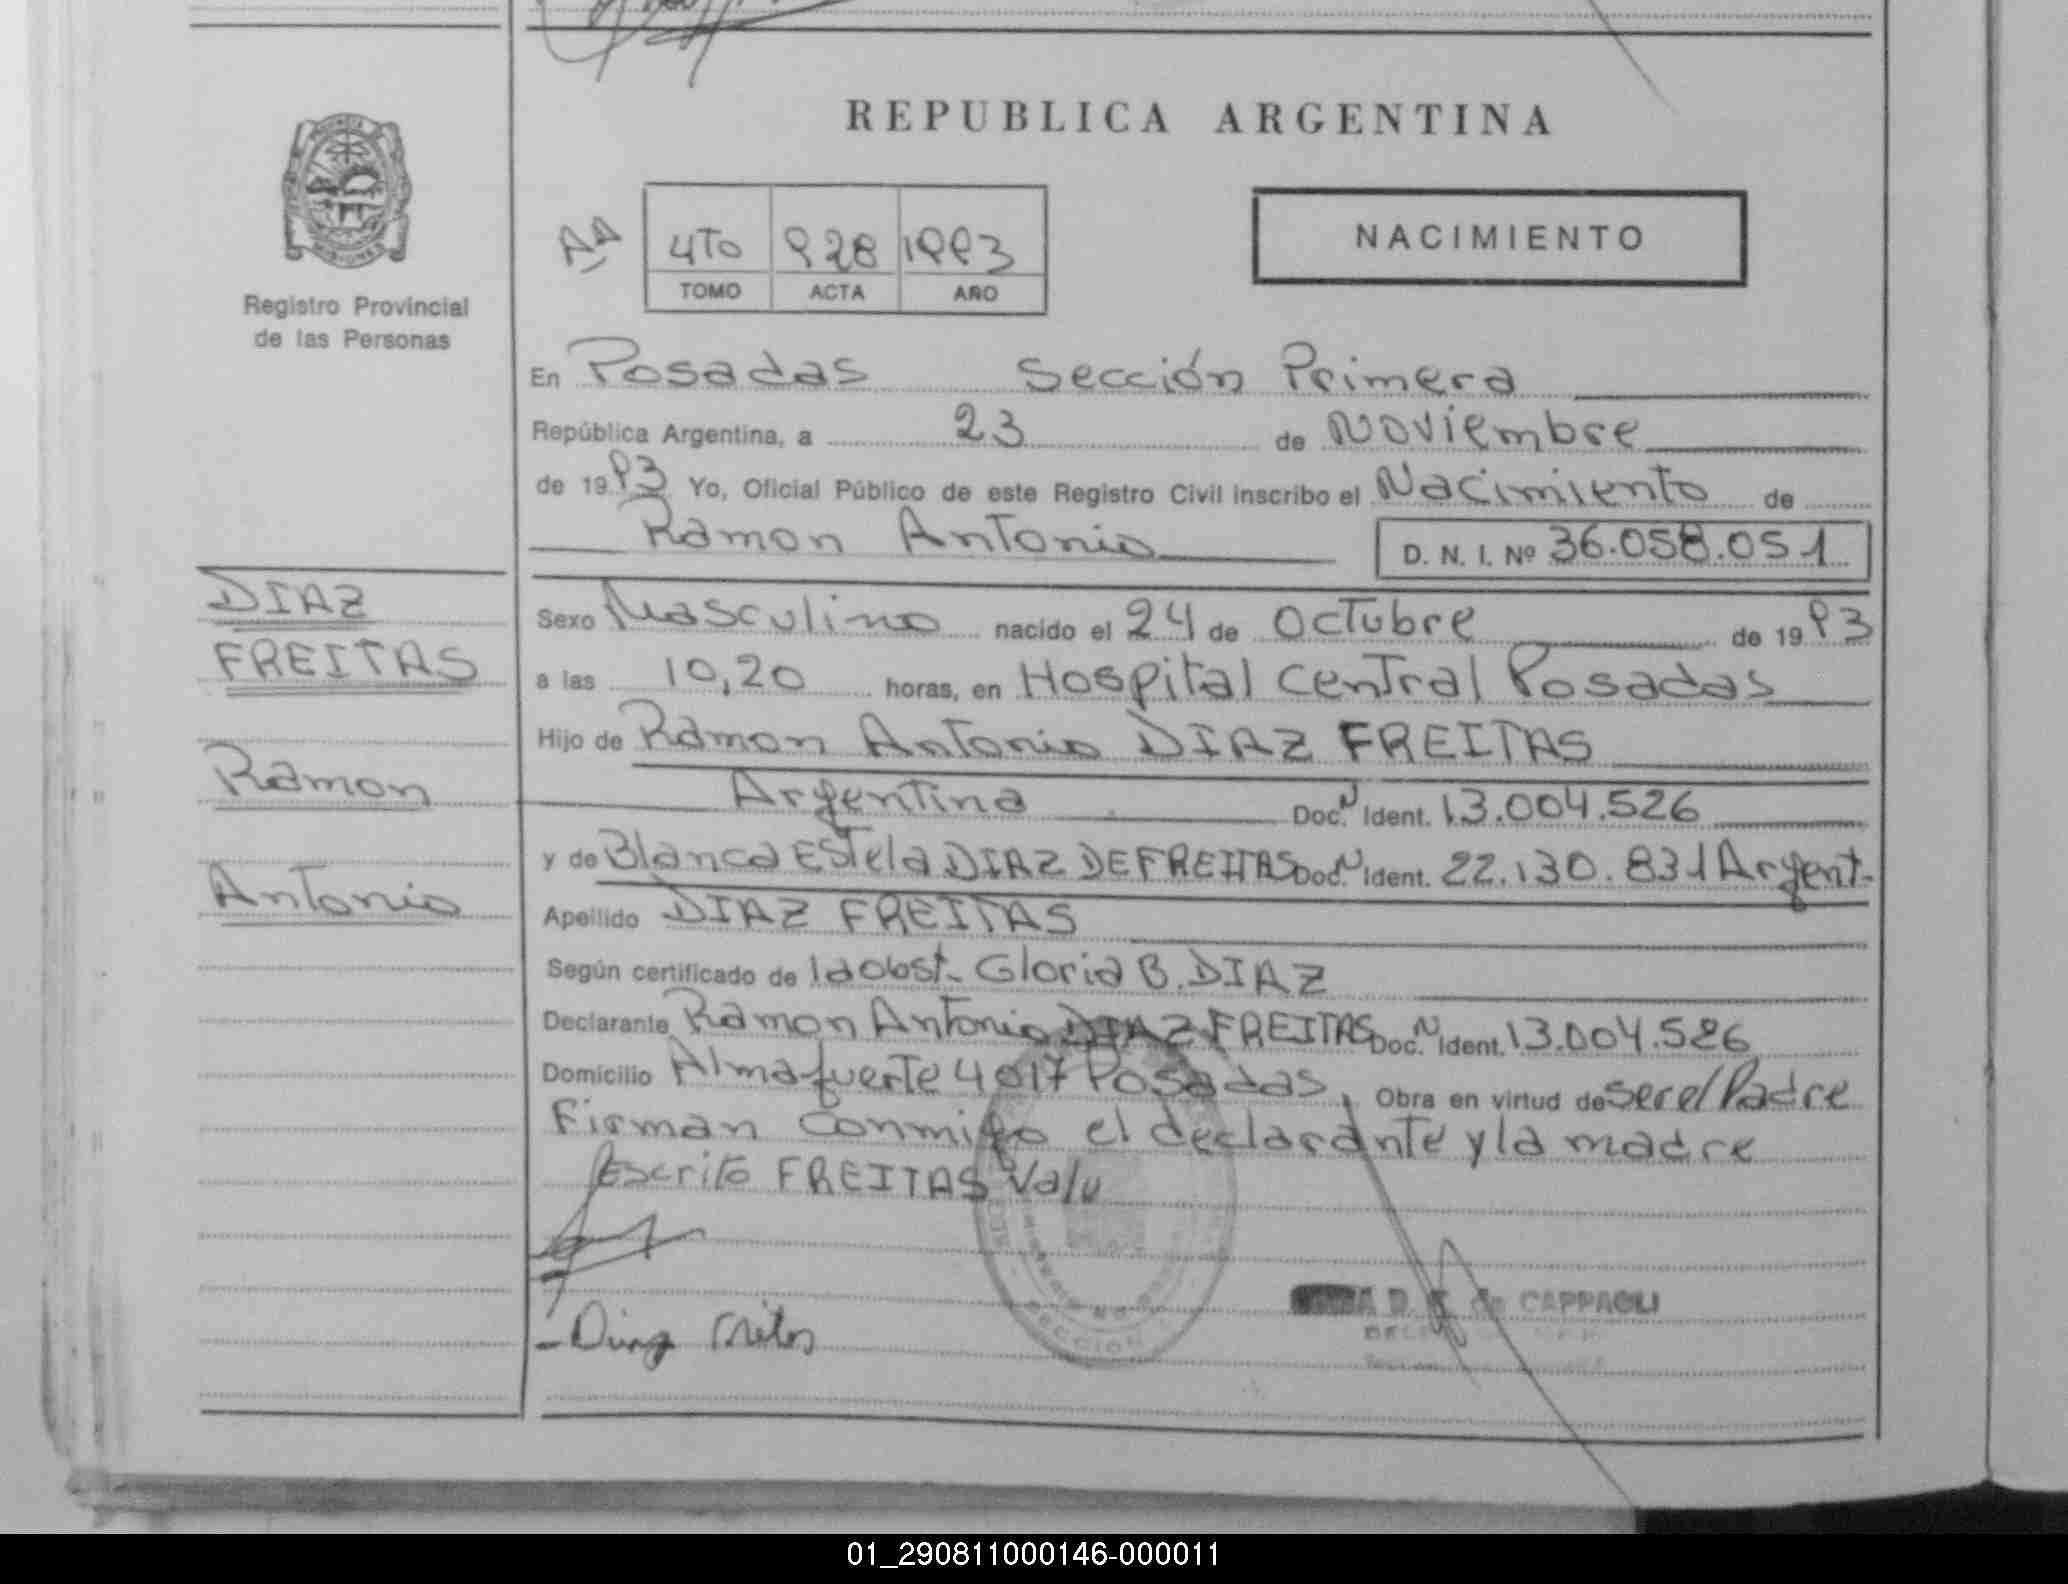 REPUBLICA ARGENTINA
PROVINCIA DE MISIONES
Registro Provincial
de las Personas
Aª
4To 928 1993
TOMO ACTA AÑO
NACIMIENTO
En Posadas Sección Primera
República Argentina, a 23 de Noviembre
de 1993 Yo, Oficial Público de este Registro Civil inscribo el Nacimiento de
Ramon Antonio D. N. I. Nº 36.058.051
DIAZ
FREITAS
Ramon
Antonio
Sexo Masculino nacido el 24 de Octubre de 1993
a las 10,20 horas, en Hospital Central Posadas
Hijo de Ramon Antonio DIAZ FREITAS
Argentina Doc. N Ident. 13.004.526
y de Blanca Estela DIAZ DE FREITAS Doc. N Ident. 22.130.831 Argent.
Apellido DIAZ FREITAS
Según certificado de la Obst. Gloria B. DIAZ
Declarante Ramon Antonio DIAZ FREITAS Doc. N Ident. 13.004.526
Domicilio Almafuerte 4017 Posadas Obra en virtud de ser el Padre
Firman conmigo el declarante y la madre
Escrito FREITAS Vale
de CAPPAGLI
SECCION
01_290811000146-000011